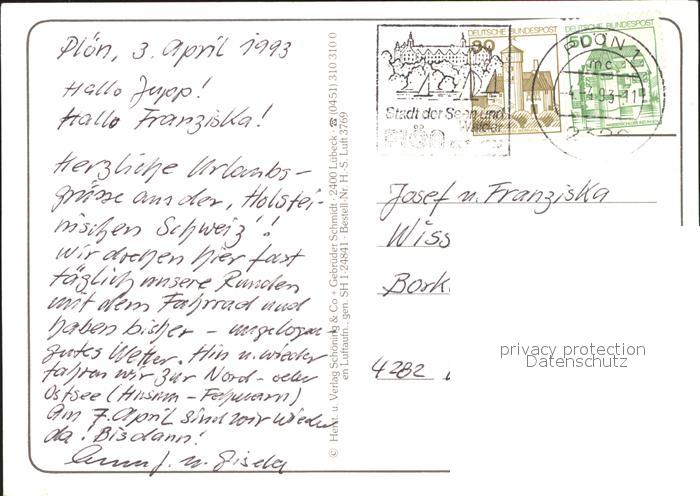 Plön, 3. April 1993
Hallo Jupp!
Hallo Franziska!
Herzliche Urlaubs-
grüsse aus der „Holstei-
nischen Schweiz"!
Wir drehen hier fast
täglich unsere Runden
mit dem Fahrrad und
haben bisher - ungelogen -
gutes Wetter. Hin u. wieder
fahren wir zur Nord- oder
Ostsee (Husum - Fehmarn)
Am 7. April sind wir wieder
da! Bis dann!
J. u. Gisela
© Herst. u. Verlag Schöning & Co + Gebrüder Schmidt · 2400 Lübeck · ☎ (0451) 310 310 0
en Luftaufn.. gen. SH 1-24841 · Bestell-Nr. H.-S. Luft 3769
Stadt der Seen und
Wälder
PLÖN
DEUTSCHE BUNDESPOST
80
DEUTSCHE BUNDESPOST
50
PLÖN 1
mc
-4.-4.93-11
Josef u. Franziska
Wiss
Bork
4282
privacy protection
Datenschutz